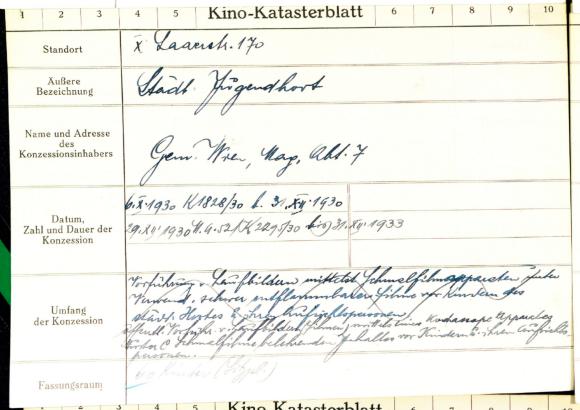 1 2 3 4 5 Kino-Katasterblatt 6 7 8 9 10
Standort X Laaerstr. 170
Äußere
Bezeichnung Städt. Jugendhort
Name und Adresse
des
Konzessionsinhabers Gem. Wien, Mag. Abt. 7
6.X.1930 K1828/30 b. 31.XII.1930
Datum,
Zahl und Dauer der
Konzession 29.XII.1930 K2295/30 bis 31.XII.1933
Umfang
der Konzession
Vorführung v. Laufbildern mittelst Schmalfilmapparaten unter
Verwend. schwer entflammbarer Filme vor Kindern des
städt. Hortes Aufsichtspersonen.
öffentl. Vorführ. v. Laufbildern (Filmen) mittels eines Kodascope Apparates
C Schmalfilme belehrenden Inhaltes vor Kindern u. ihren Aufsichts-
personen.
Fassungsraum Kinder
1 2 3 4 5 Kino-Katasterblatt 6 7 8 9 10